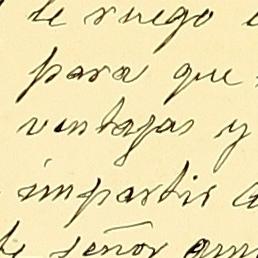 te ruego
para que
ventajas y
impartir
te señor